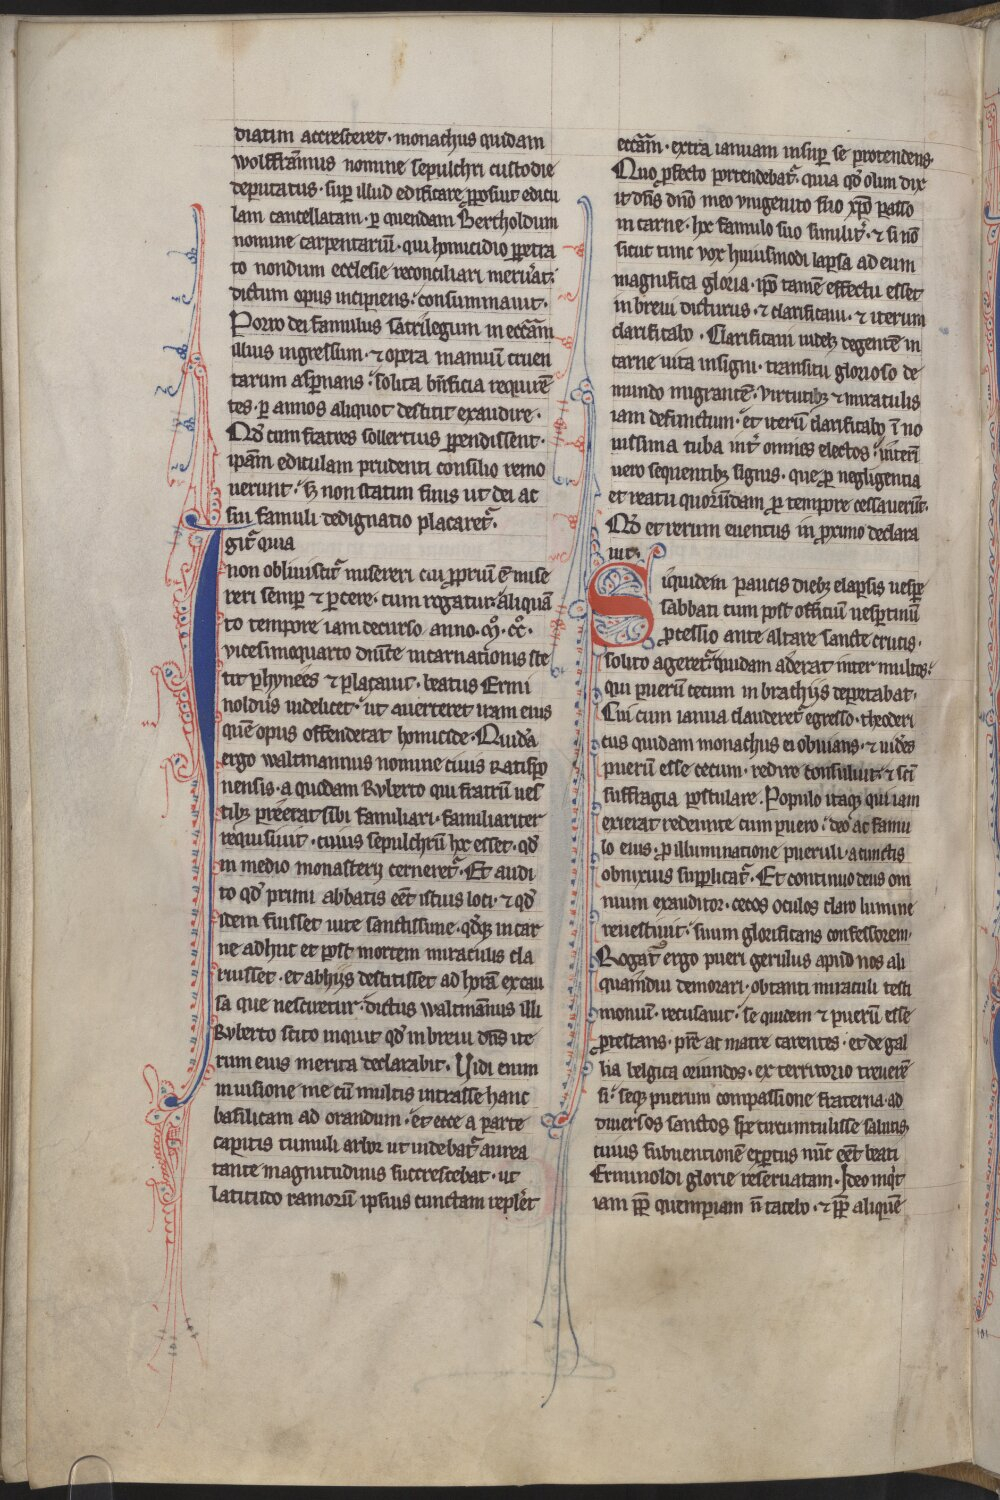 diatim accresceret · monachus quidam
wolfframmus nomine sepulchri custodie
deputatus · sup̱ illud edificare ꝓposuit edicu
lam cancellatam · ꝑ quendam Bertholdum
nomine carpentariū · qui homicidio ꝑpetra
to nondum ecclesie reconciliari meruat͛ :
dictum opus incipiens : consummauit ·
Porro dei famulus sacrilegum in eccām
illius ingressum · ⁊ opera manuū cruen
tarum asꝑnans : solita bn̄ficia requirē
tes · ꝑ annos aliquot destitit exaudire ·
Qd̓ cum fratres sollertius ꝑpendissent ·
ip̄am ediculam prudenti consilio remo
uerunt : sꝫ non statim finis ut dei ac
sui famuli dedignatio placaret᷑ ·
Igit᷑ quia
non obliuiscit᷑ misereri cui ꝓpriū ē mise
reri semꝑ ⁊ ꝑcere · cum rogatur : aliquā
to tempore iam decurso anno · ꝏ · cc̄ ·
vicesimoquarto dn̄ice incarnationis ste
tit phynees ⁊ placauit · beatus Ermi
noldus uidelicet · ut auerteret iram eius
quē opus offenderat homicide · Quidā
ergo waltmannus nomine ciuis Ratispo
nensis · a quodam Rvberto qui fratrū ues
tibꝫ preerat sibi familiari · familiariter
requisiuit · cuius sepulchrū hoc esset · qd̓
in medio monasterij cerneret᷑ · Et audi
to qd̓ primi abbatis eēt istius loci · ⁊ qd̓
idem fuisset uite sanctissime · qd̓qꝫ in car
ne adhuc et post mortem miraculis cla
ruisset · et ab hijs destitisset ad horā ex cau
sa que nesciretur · dictus waltmānus illi
Rvberto scito inquit qd̓ in breui dn̄s ite
rum eius merita declarabit · Uidi enim
in uisione me cū multis intrasse hanc
basilicam ad orandum · et ecce a parte
capitis tumuli arbor ut uidebat᷑ aurea
tante magnitudinis succrescebat · ut
latitudo ramorū ipsius cunctam repleret
eccām · extra ianuam insuꝑ se protendens ·
Quo ꝓfecto portendebat᷑ · quia qd̓ olim dix
it dn̄s dn̄o meo vnigenito suo xp̄o passo
in carne · hoc famulo suo simulit͛ · ⁊ si nō
sicut tunc vox huiusmodi lapsa ad eum
magnifica gloria · ip̄o tamē effectu esset
in breui dicturus · ⁊ clarificaui · ⁊ iterum
clarificabo · Clarificaui uidelꝫ degentē in
carne uita insigni · transitu glorioso de
mundo migrantē · virtutibꝫ ⁊ miraculis
iam defunctum · et iterū clarificabo ī no
uissima tuba int͛ omnes electos : interī
uero sequentibꝫ signis · que ꝑ negligentia
et reatu quorundam ꝓ tempore cessauerūt ·
Qd̓ et rerum euentus in ꝓximo declara
uit ·
Siquidem paucis diebꝫ elapsis uesꝑe
sabbati cum post officiū uesꝑtinū
ꝓcessio ante altare sancte crucis ·
solito ageret᷑ : quidam aderat inter multos ·
qui puerū cecum in brachijs deportabat ·
Cui cum ianua clauderet᷑ egresso · theoderi
cus quidam monachus ei obuians · ⁊ uidēs
puerū esse cecum · redire consuluit · ⁊ scī
suffragia postulare · Populo itaqꝫ qui iam
exierat redeunte cum puero : deo ac famu
lo eius · ꝓ illuminatione pueruli · a cunctis
obnixius supplicat᷑ · Et continuo deus om
nium exauditor · cecos oculos claro lumine
reuestiuit · suum glorificans confessorem ·
Rogat᷑ ergo pueri gerulus apud nos ali
quamdiu demorari · obtanti miraculi testi
moniū · recusauit · se quidem ⁊ puerū esse
ꝓtestans · pr̄e ac matre carentes · et de gal
lia belgica oriundos · ex territorio treuerē
si · seqꝫ puerum compassione fraterna · ad
diuersos sanctos spe circumtulisse salutis
cuius subuentionē exꝑtus nūc eēt beati
Erminoldi glorie reseruatam · Ideo inq̇t
iam ꝓpt̄ quempiam n̄ tacebo · ⁊ ꝓpt̄ aliquē